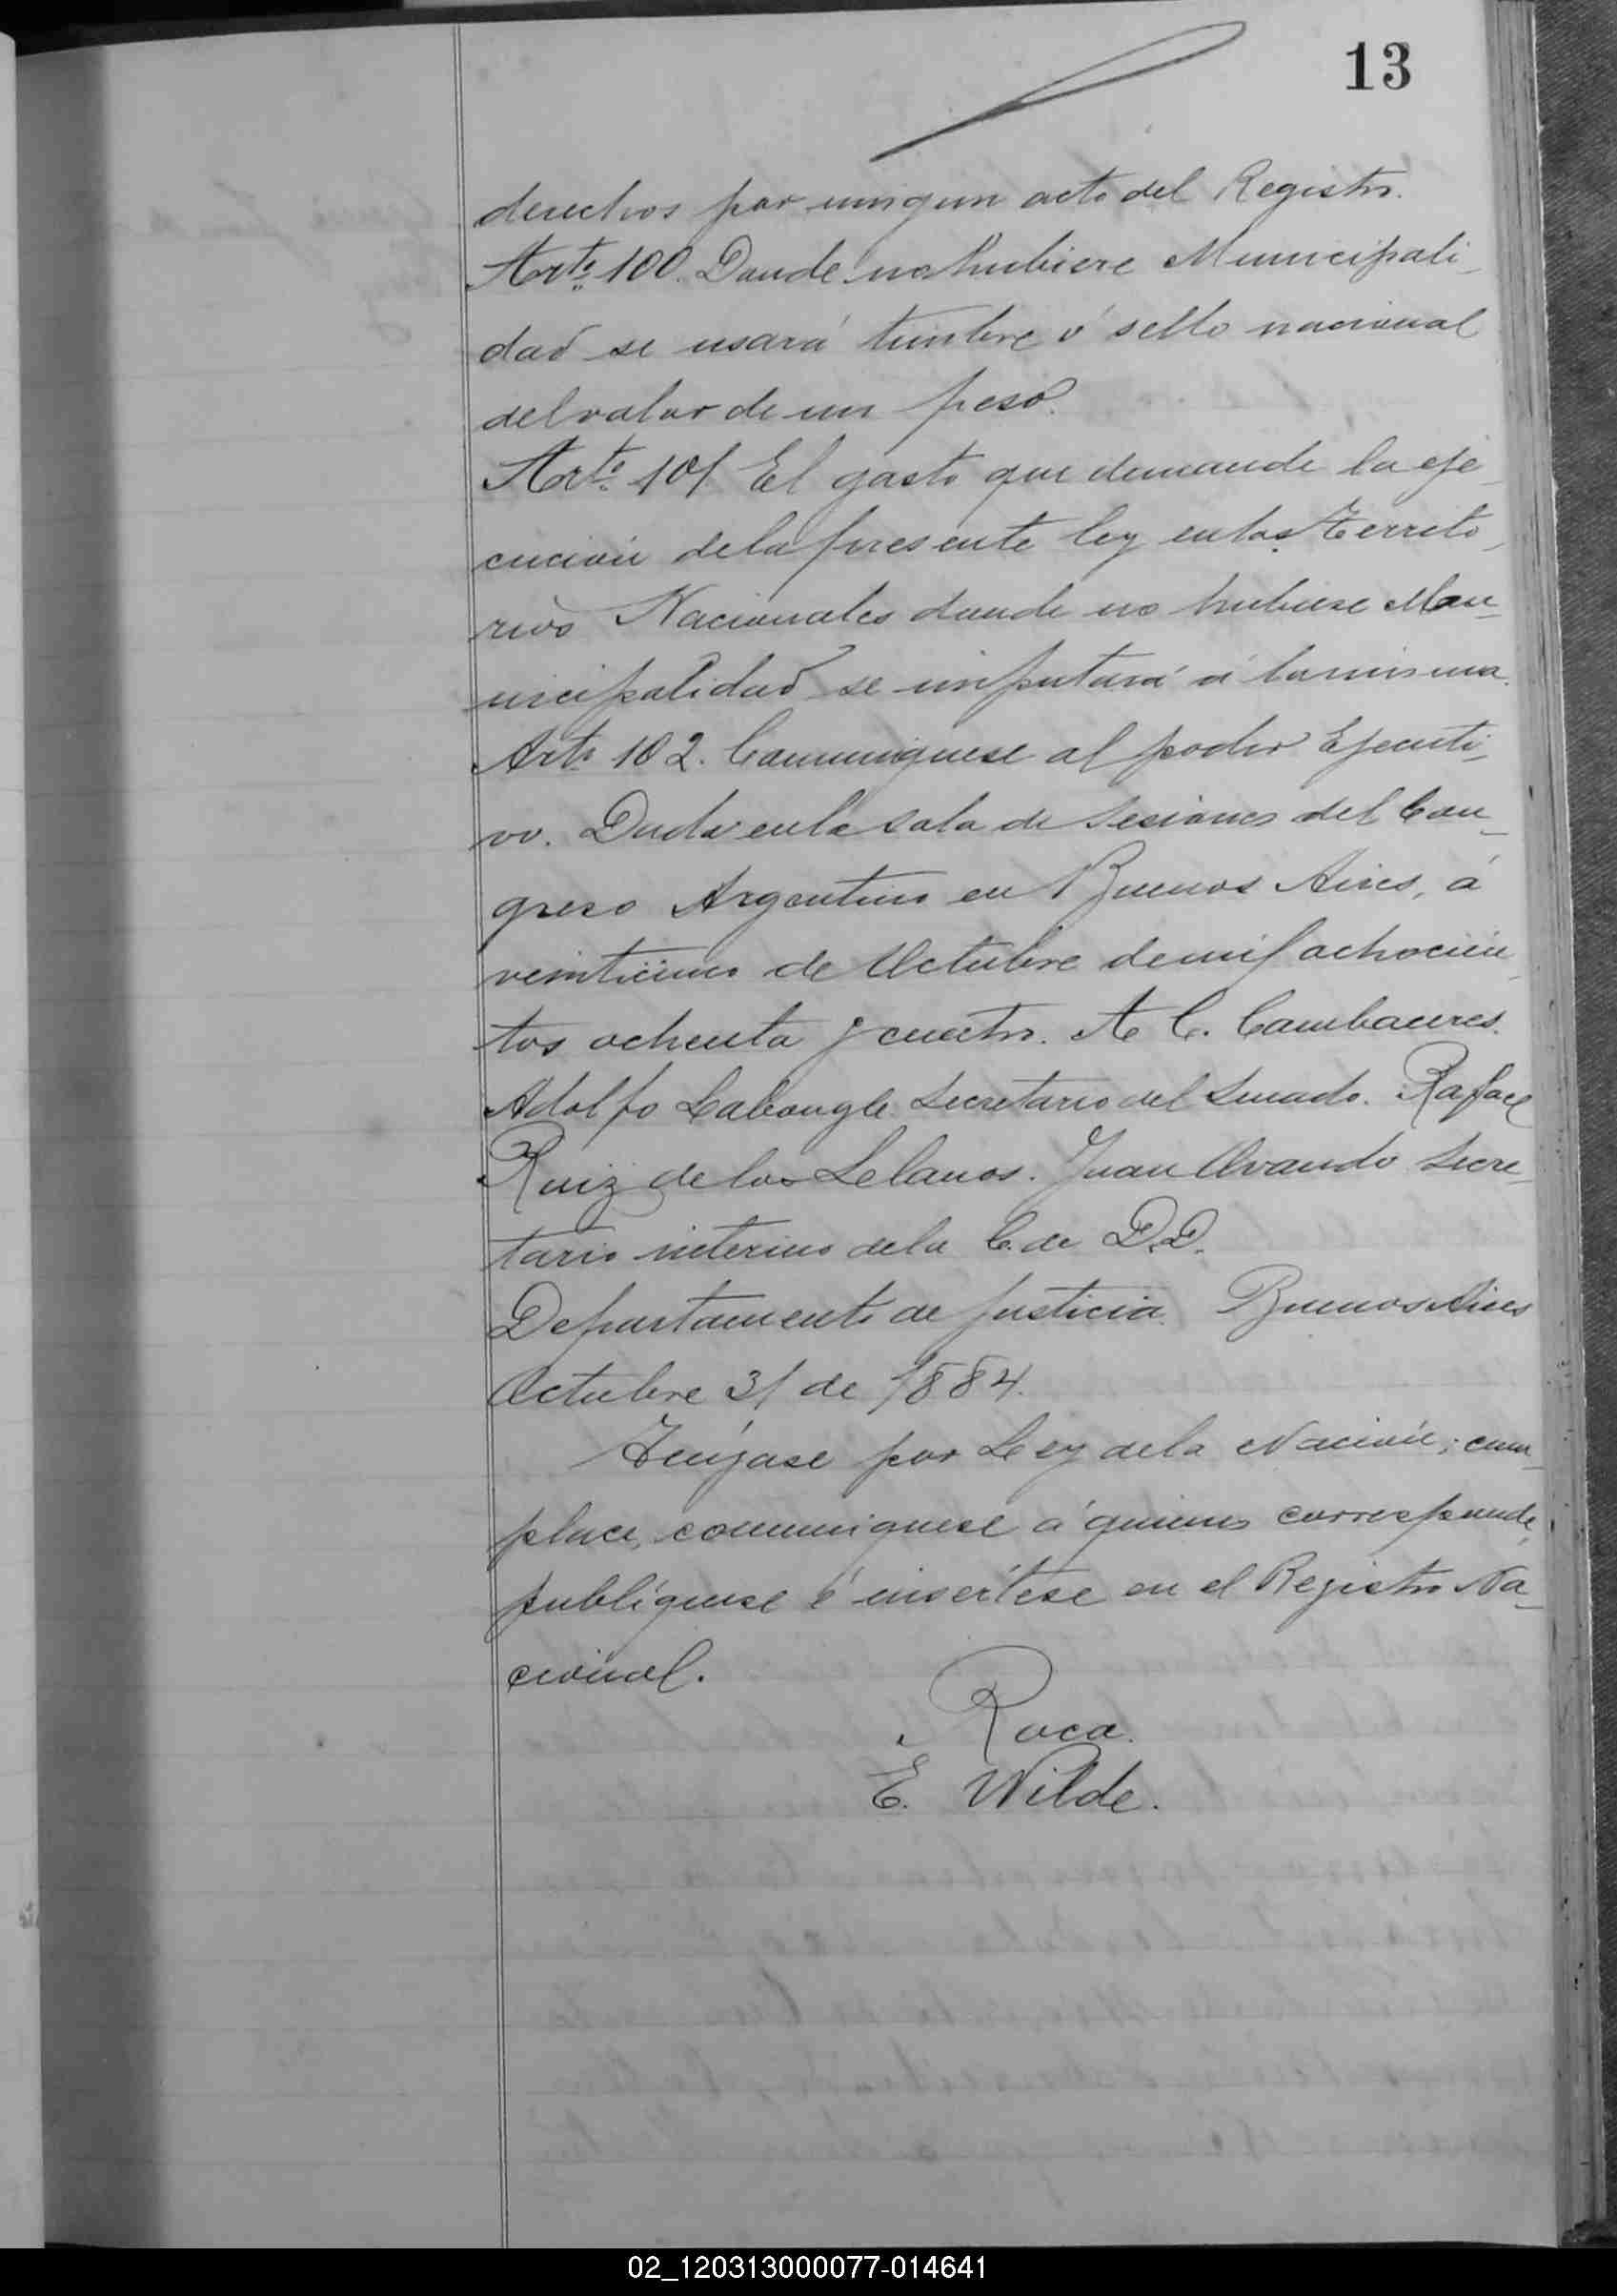 13
derechos por ningun acto del Registro.
Arto 100. Donde no hubiere Municipali-
dad se usará timbre ó sello nacional
del valor de un peso.
Arto 101 El gasto que demande la eje-
cucion de la presente ley en los Territo-
rios Nacionales donde no hubiese Mu-
nicipalidad se imputará á la misma.
Arto 102. Comuniquese al poder Ejecuti-
vo. Dada en la Sala de Sesiones del Con-
greso Argentino en Buenos Aires, á
veinticinco de Octubre de mil ochocien-
tos ochenta y cuatro. A C. Cambaceres.
Adolfo Labougle Secretario del Senado. Rafael
Ruiz de los Lelanos. Juan Ovando Secre-
tario interino de la C. de D.D.
Departamento de Justicia. Buenos Aires
Octubre 31 de 1884.
Tengase por Ley de la Nación; cum-
plase, comuniquese á quienes corresponde,
publíquese é insértese en el Registro Na-
cional.
Roca.
E. Wilde.
02_120313000077-014641